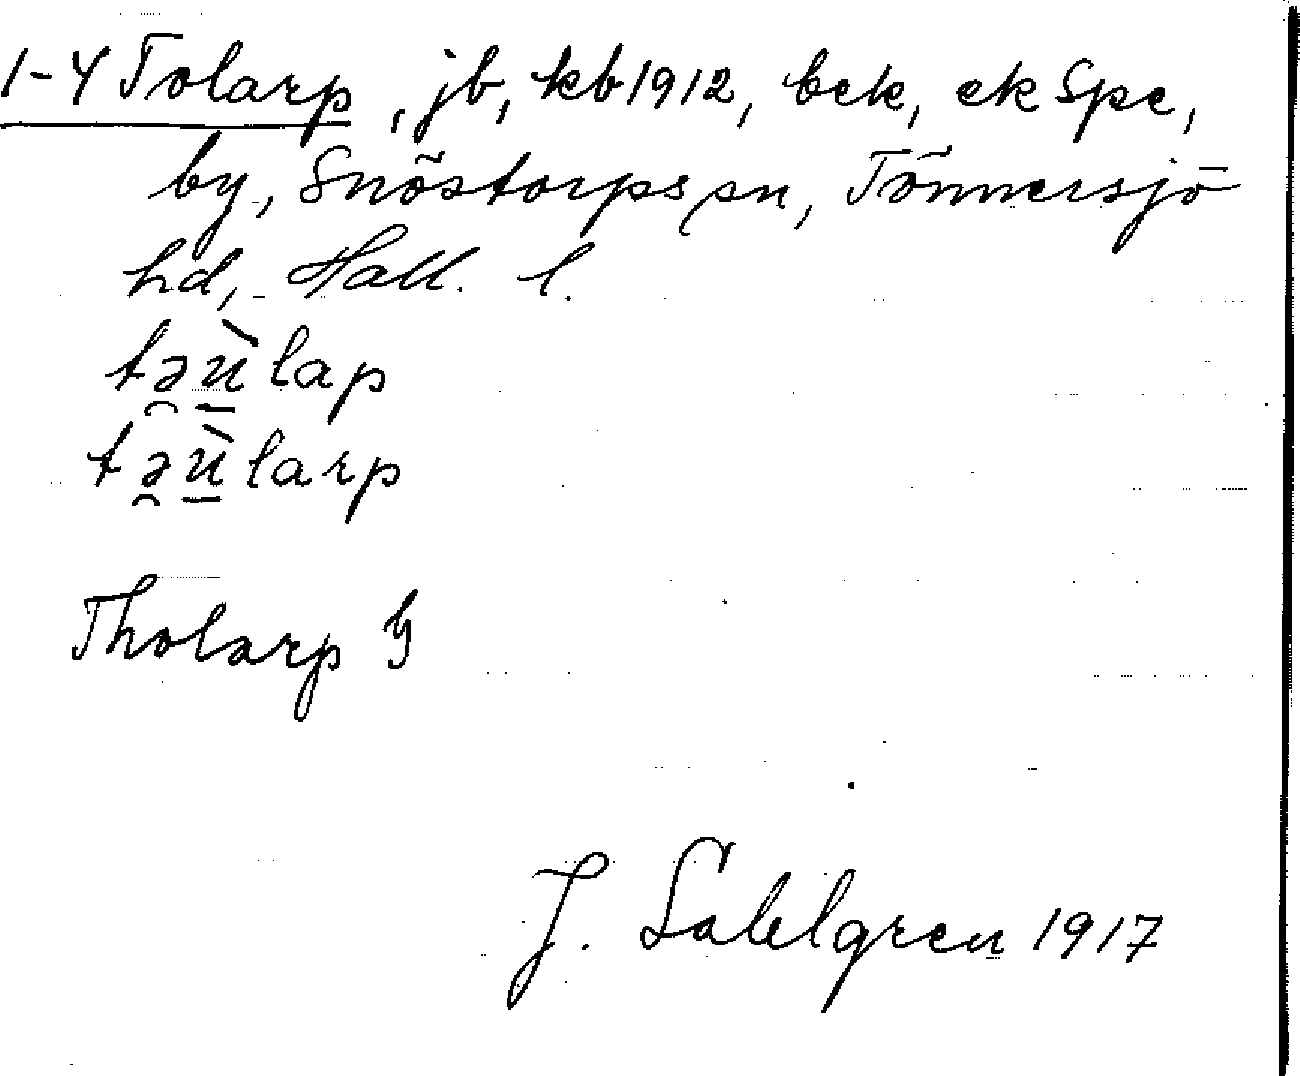 1-4 Tolarp, jb, kb 1912, bek, ek Spe,
by, Snöstorps sn, Tönnersjö
hd, Hall. l.
tə̯ù̱lap
tə̯ù̱larp
Tholarp G
J. Sahlgren 1917